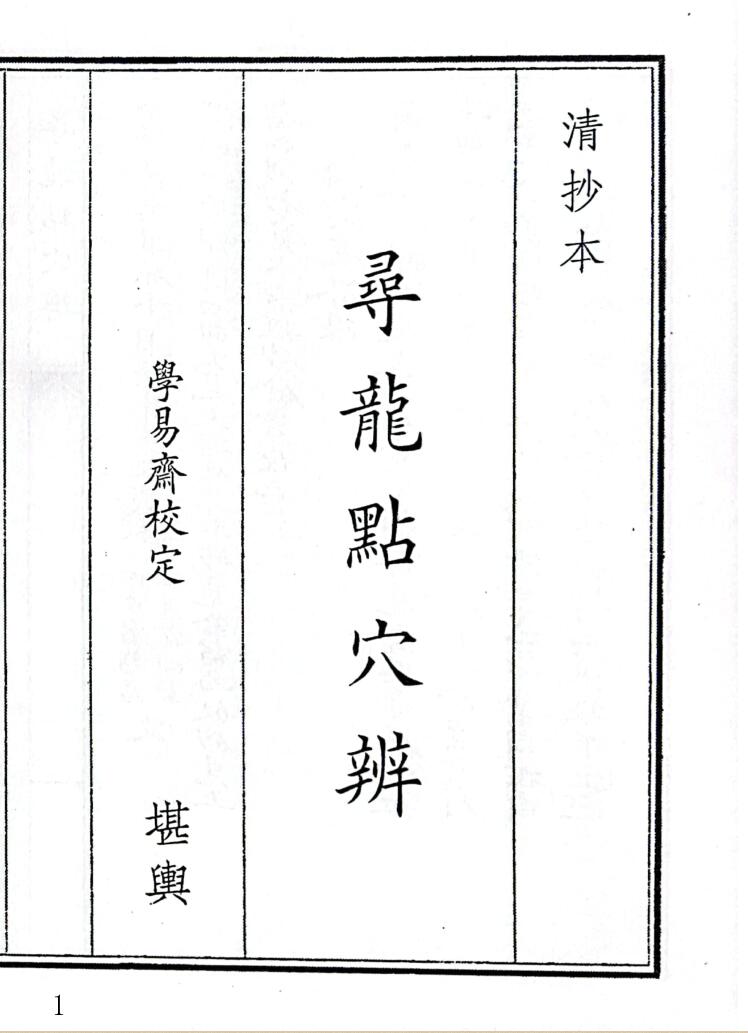 清抄本
尋龍點穴辨
學易齋校定
堪輿
1